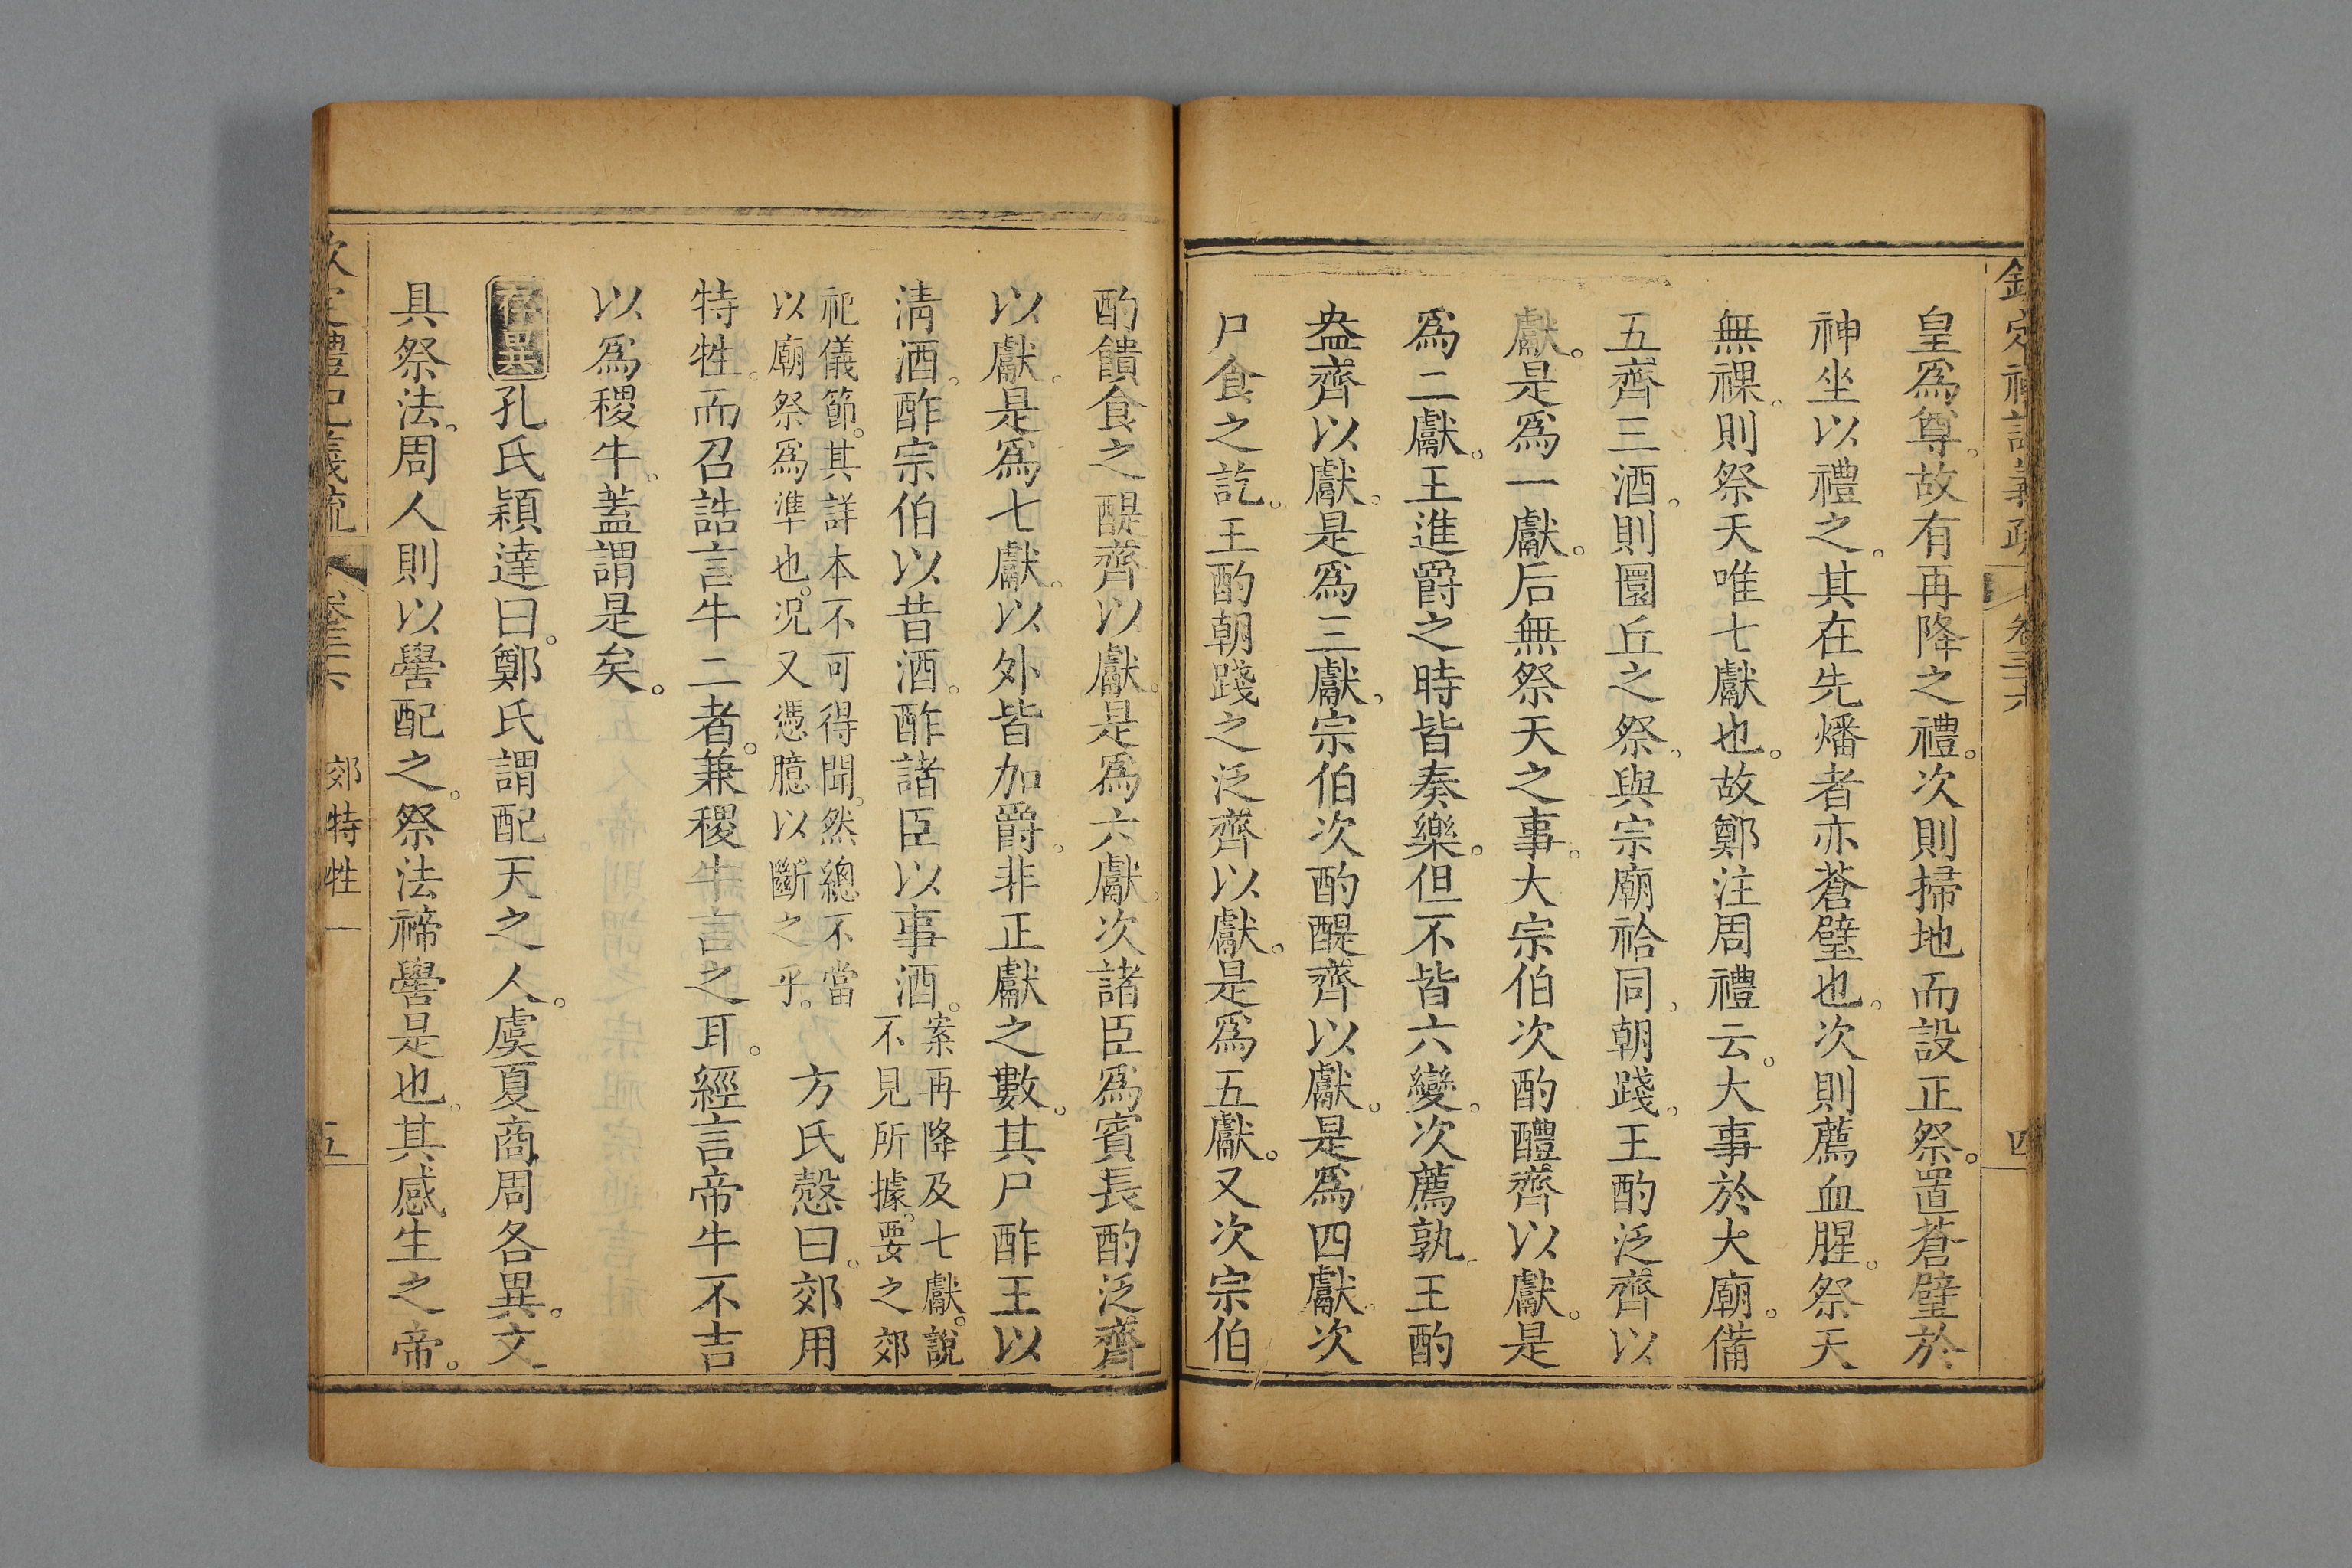 欽定禮記義疏 卷三十六 四
皇爲尊。故有再降之禮。次則掃地而設正祭。置蒼璧於
神坐以禮之。其在先燔者亦蒼璧也。次則薦血腥。祭天
無祼。則祭天唯七獻也。故鄭注周禮云。大事於大廟。備
五齊三酒。則圜丘之祭。與宗廟祫同。朝踐。王酌泛齊以
獻。是爲一獻。后無祭天之事。大宗伯次酌醴齊以獻。是
爲二獻。王進爵之時皆奏樂。但不皆六變。次薦孰。王酌
盎齊以獻。是爲三獻。宗伯次酌醍齊以獻。是爲四獻。次
尸食之訖。王酌朝踐之泛齊以獻。是爲五獻。又次宗伯
酌饋食之醍齊以獻。是爲六獻。次諸臣爲賓長酌泛齊
以獻。是爲七獻。以外皆加爵。非正獻之數。其尸酢王以
淸酒。酢宗伯以昔酒。酢諸臣以事酒。案再降及七獻。說
不見所據。要之郊
祀儀節。其詳本不可得聞。然總不當
以廟祭爲準也。况又憑臆以斷之乎。方氏慤曰。郊用
特牲。而召誥言牛二者。兼稷牛言之耳。經言帝牛不吉
以爲稷牛。蓋謂是矣。
存異孔氏穎達曰。鄭氏謂配天之人。虞夏商周各異。文
具祭法。周人則以嚳配之。祭法禘嚳是也。其感生之帝。
欽定禮記義疏 卷三十六 郊特牲一 五